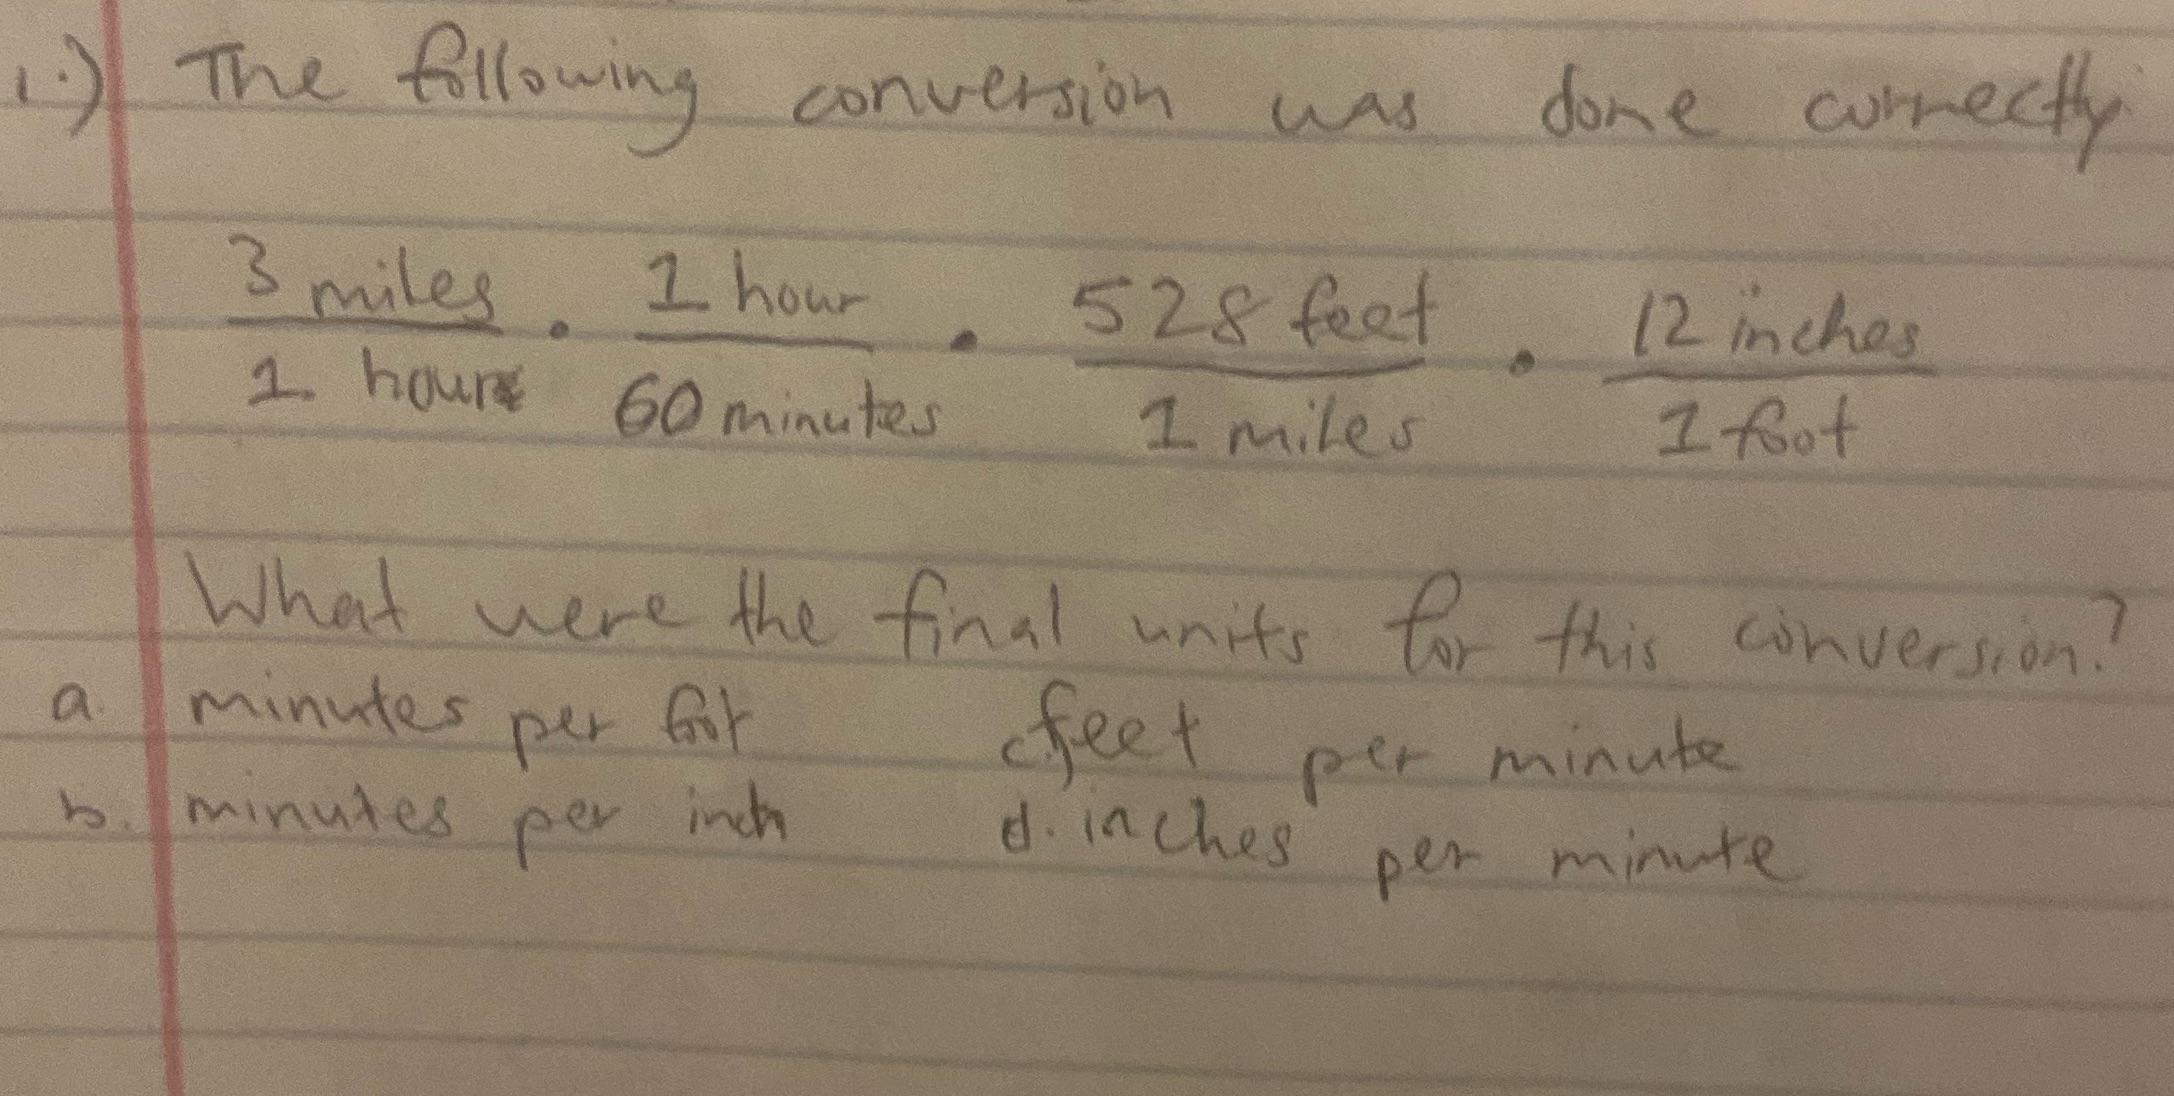 1.) The following conversion was done correctly
3 miles / 1 hour · 1 hour / 60 minutes · 528 feet / 1 miles · 12 inches / 1 foot
What were the final units for this conversion?
a. minutes per foot c. feet per minute
b. minutes per inch d. inches per minute